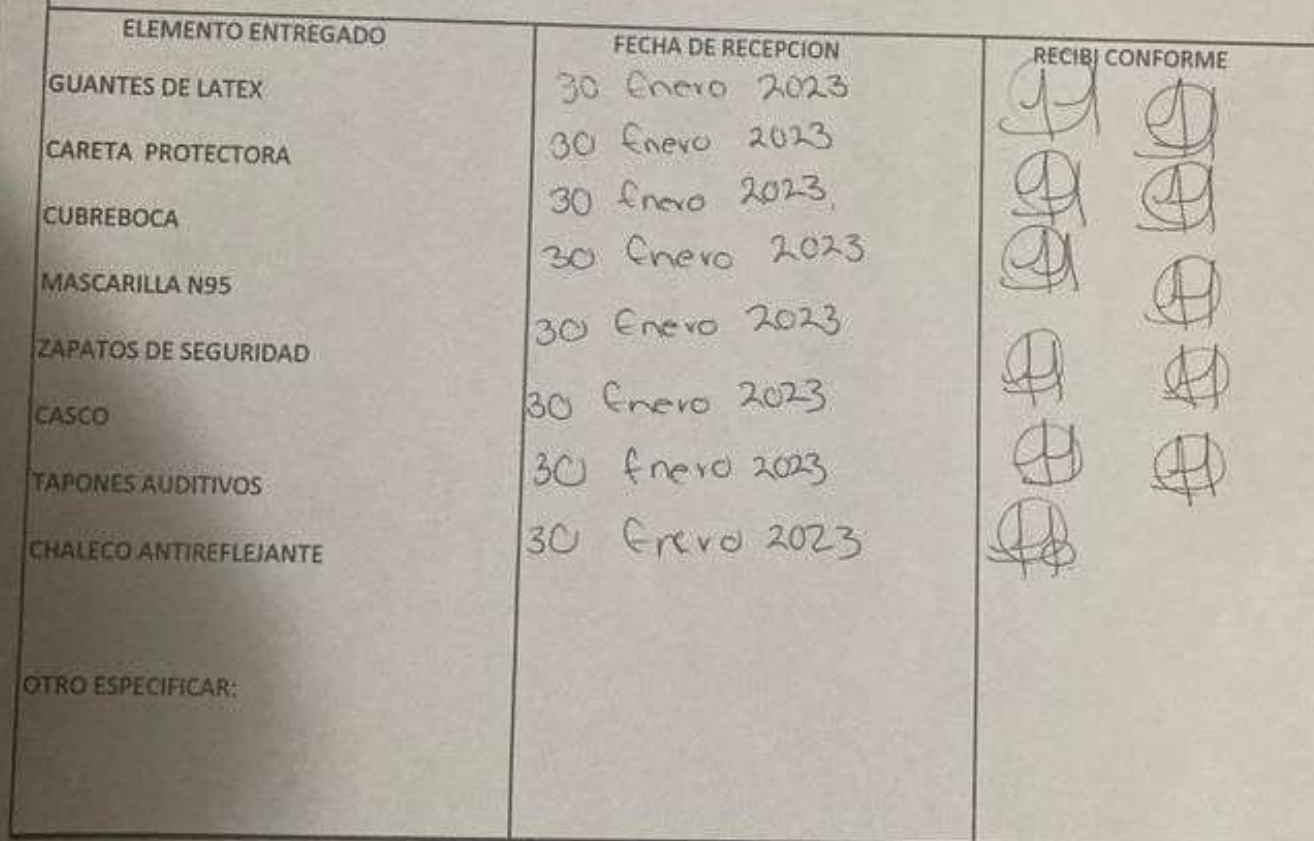 ELEMENTO ENTREGADO FECHA DE RECEPCION RECIBI CONFORME
GUANTES DE LATEX 30 Enero 2023
CARETA PROTECTORA 30 Enero 2023
CUBREBOCA 30 Enero 2023
MASCARILLA N95 30 Enero 2023
ZAPATOS DE SEGURIDAD 30 Enero 2023
CASCO 30 Enero 2023
TAPONES AUDITIVOS 30 Enero 2023
CHALECO ANTIREFLEJANTE 30 Enero 2023
OTRO ESPECIFICAR: